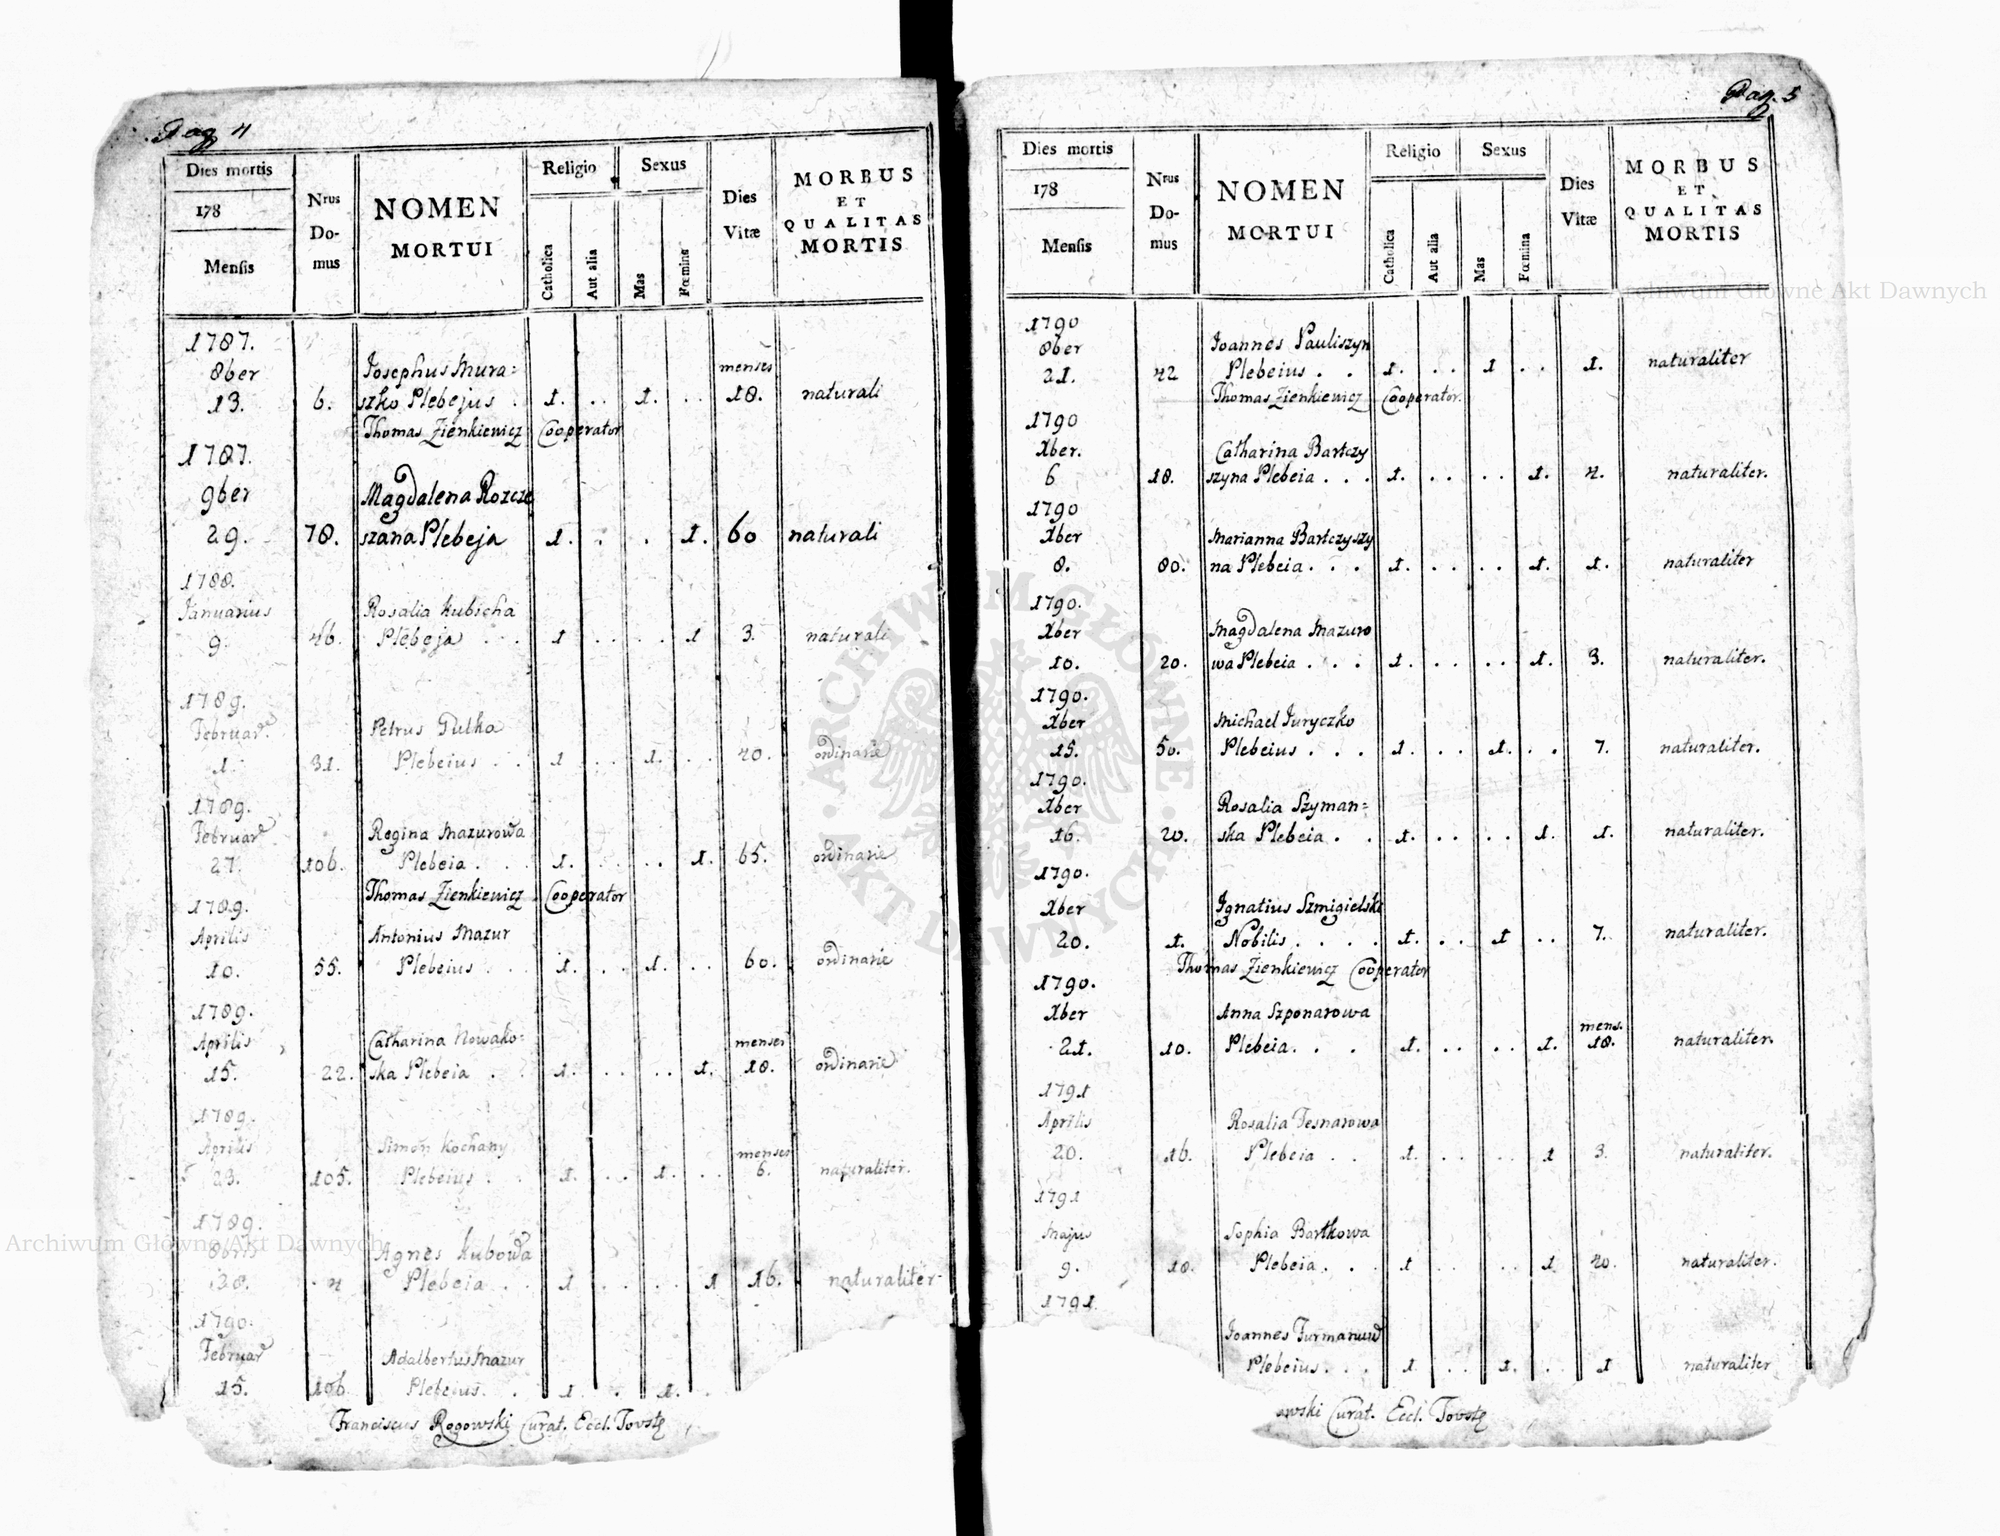 Pag 4
Dies mortis
178
Mensis
Nrus
Do-
mus
NOMEN
MORTUI
Religio
Catholica
Aut alia
Sexus
Mas
Fœmina
Dies
Vitæ
MORBUS
ET
QUALITAS
MORTIS
1787.
8ber
Josephus Mura=
menses
13. 6. szko Plebejus . 1. . . 1. . . 18. naturali
Thomas Zienkiewicz Cooperator
1787.
9ber
Magdalena Rozcze
29. 78. szana Plebeja 1. . . 1. 60 naturali
1788.
Januarius
Rosalia Kubicha
9. 46. Plebeja . . 1 . . . . 1 3. naturali
1789.
Februar.
Petrus Gulka
1. 31. Plebeius . . 1 . . 1. . . 40. ordinarie
1789.
Februar
Regina Mazurowa
27. 106. Plebeia . . 1. . . 1. 65. ordinarie
Thomas Zienkiewicz Cooperator
1789.
Aprilis
Antonius Mazur
10. 55. Plebeius . . 1. . . 1. . . 60. ordinarie
1789.
Aprilis
Catharina Nowako-
menses
15. 22. ska Plebeia . . 1. . . . . 1. 18. ordinarie
1789.
Aprilis
Simon Kochany
menses
23. 105. Plebeius . . 1. . . 1. . . 6. naturaliter.
1789.
Agnes Kubowa
28. 4 Plebeia . . 1 . . . . 1 16. naturaliter
1790.
Februar
Adalbertus Mazur
15. 106 Plebeius. . 1 . . 1. .
Franciscus Rogowski Curat. Eccl. Tovste
Pag. 5
Dies mortis
178
Mensis
Nrus
Do-
mus
NOMEN
MORTUI
Religio
Catholica
Aut alia
Sexus
Mas
Fœmina
Dies
Vitæ
MORBUS
ET
QUALITAS
MORTIS
1790
8ber
Joannes Pauliszyn
21. 42 Plebeius . . 1. . . 1 . . 1. naturaliter
Thomas Zienkiewicz Cooperator.
1790
Xber.
Catharina Bartczy
6 18. szyna Plebeia . . . 1. . . . . 1. 4. naturaliter.
1790
Xber
Marianna Bartczyszy
8. 80. na Plebeia . . . 1. . . . . 1. 1. naturaliter
1790.
Xber
Magdalena Mazuro
10. 20. wa Plebeia . . . 1. . . . . 1. 3. naturaliter.
1790.
Xber
Michael Juryczko
15. 50. Plebeius . . . 1. . . 1. . . 7. naturaliter.
1790.
Xber
Rosalia Szyman=
16. 20. ska Plebeia . . 1. . . . . 1. 1. naturaliter.
1790.
Xber
Ignatius Szmigielski
20. 1. Nobilis . . . . 1. . . 1 . . 7. naturaliter.
Thomas Zienkiewicz Cooperator
1790.
Xber
Anna Szponarowa
mens.
21. 10. Plebeia. . . 1. . . . . 1. 18. naturaliter.
1791
Aprilis
Rosalia Tesnarowa
20. 16. Plebeia . . 1. . . . . 1 3. naturaliter.
1791
Majus
Sophia Bartkowa
9. 18. Plebeia. . . 1 . . . . 1. 40. naturaliter.
1791.
Joannes
Plebeius. . . 1. . . 1. . . 1 naturaliter
owski Curat. Eccl. Tovste
Archiwum Główne Akt Dawnych
Archiwum Główne Akt Dawnych
ARCHIWUM GŁÓWNE · AKT DAWNYCH ·